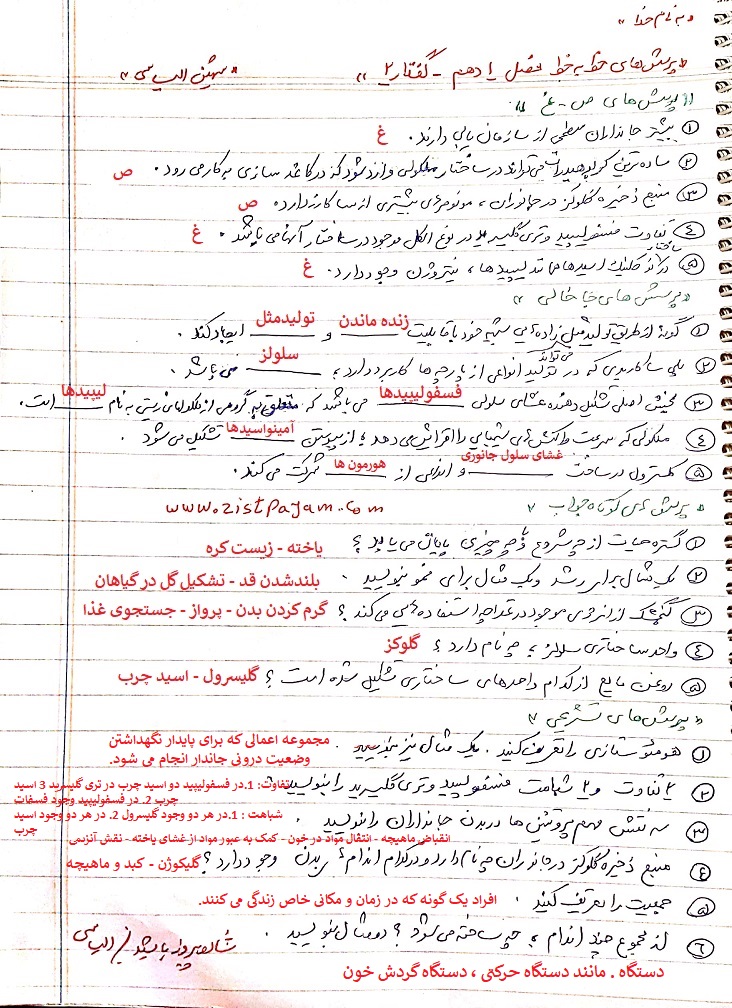 « به نام خدا »
« پرسش های خط به خط فصل ۱ دهم - گفتار ۲ » « مهشین الیاسی »
« پرسش های ص - غ »
① بیشتر جانداران سطحی از سازمان یابی دارند. غ
② ساده ترین کربوهیدرات می تواند در ساختار مولکولی وارد شود که در کاغذ سازی به کار می رود. ص
③ منبع ذخیره گلوکز در جانوران، مونومرهای بیشتری از ساکارز دارد. ص
④ تفاوت فسفولیپید و تری گلیسرید در نوع الکل موجود در ساختار آنها می باشد. غ
⑤ در نوکلئیک اسیدها مانند لیپیدها، نیتروژن وجود دارد. غ
« پرسش های جا خالی »
① گونه از طریق تولید مثل زاده هایی شبیه خود با قابلیت زنده ماندن و تولیدمثل ایجاد کند.
② پلی ساکاریدی که در تولید انواعی از پارچه ها کاربرد دارد، سلولز می باشد.
③ بخش اصلی تشکیل دهنده غشای سلولی فسفولیپیدها می باشند که متعلق به گروهی از مولکولهای زیستی به نام لیپیدها است.
④ مولکولی که سرعت واکنش های شیمیایی را افزایش می دهد، از پیوستن آمینواسیدها تشکیل می شود.
⑤ کلسترول در ساخت غشای سلول جانوری و انواعی از هورمون ها شرکت می کند.
« پرسش های کوتاه جواب » www.zistpayam.com
① گستره حیات از چه شروع و به چه چیزی پایان می یابد؟ یاخته - زیست کره
② یک مثال برای رشد و یک مثال برای نمو بنویسید. بلندشدن قد - تشکیل گل در گیاهان
③ گنجشک از انرژی موجود در غذا چه استفاده هایی می کند؟ گرم کردن بدن - پرواز - جستجوی غذا
④ واحد ساختاری سلولز، چه نام دارد؟ گلوکز
⑤ روغن مایع از کدام واحدهای ساختاری تشکیل شده است؟ گلیسرول - اسید چرب
« پرسش های تشریحی »
① هومئوستازی را تعریف کنید. یک مثال نیز بنویسید. مجموعه اعمالی که برای پایدار نگهداشتن
وضعیت درونی جاندار انجام می شود.
② ۲ تفاوت و ۲ شباهت فسفولیپید و تری گلیسرید را بنویسید. تفاوت: 1.در فسفولیپید دو اسید چرب در تری گلیسرید 3 اسید
چرب 2. در فسفولیپید وجود فسفات
شباهت : 1.در هر دو وجود گلیسرول 2. در هر دو وجود اسید
چرب
③ سه نقش مهم پروتئین ها در بدن جانداران را بنویسید
انقباض ماهیچه - انتقال مواد در خون - کمک به عبور مواد از غشای یاخته - نقش آنزیمی
④ منبع ذخیره گلوکز در جانوران چه نام دارد و در کدام اندام های بدن وجود دارد؟ گلیکوژن - کبد و ماهیچه
⑤ جمعیت را تعریف کنید. افراد یک گونه که در زمان و مکانی خاص زندگی می کنند.
⑥ از مجموع چند اندام، چه ساخته می شود؟ دو مثال بنویسید.
دستگاه . مانند دستگاه حرکتی ، دستگاه گردش خون